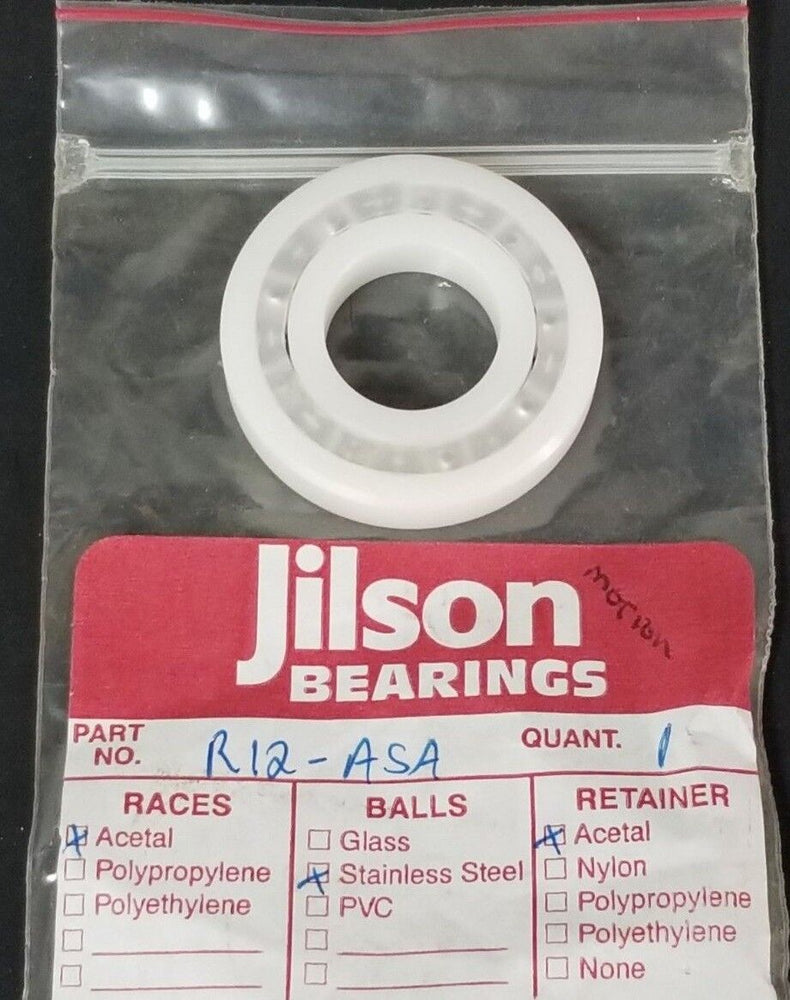 Jilson
BEARINGS
MOTION
PART NO. R12-ASA QUANT. 1
RACES
Acetal
Polypropylene
Polyethylene
BALLS
Glass
Stainless Steel
PVC
RETAINER
Acetal
Nylon
Polypropylene
Polyethylene
None